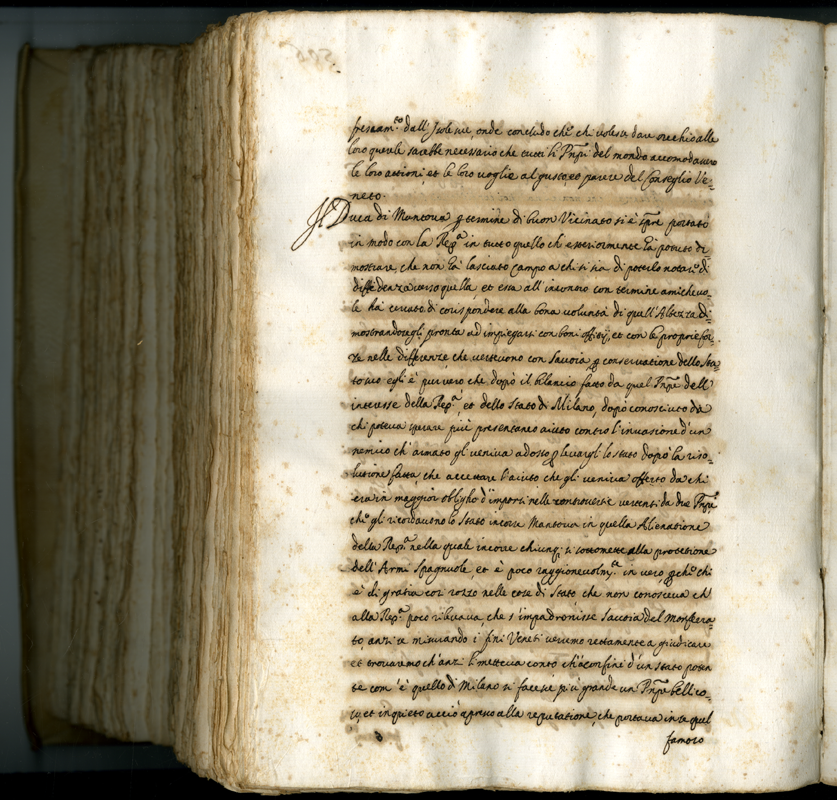 frescam.to dall'Isole sue, onde concludo che chi volesse dare orecchio alle
loro querele sarebbe necessario che tutti li Pnpi del mondo accomodassero
le loro attioni, et le loro voglie al gusto, et parere del Conseglio Ve=
neto.
Il Duca di Mantova p termine di buon Vicinato si è spre portato
in modo con la Rep.a in tutto quello ch'esteriormente hà potuto di=
mostrare, che non hà lasciato campo a chi si sia di poterlo notar di
diffidenza verso quella, et essa all'incontro con termine amichevo=
le ha cercato di corispondere alla bona volontà di quell'Altezza di=
mostrandosegli pronta ad impiegarsi con boni offitij, et con le proprie for=
ze nelle differenze, che vertevono con Savoia p conservatione dello Sta=
to suo egli è pur vero, che dopò il bilancio fatto da quel Pnpe dell'
interesse della Rep.a, et dello Stato di Milano, dopo conosciuto da
chi poteva sperare più presentaneo aiuto contro l'invasione d'un
nemico ch'armato gli veniva adosso p levargli lo stato dopò la riso=
lutione fatta che accettare l'aiuto che gli veniva offerto da chi
era in maggior obligho d'imporsi nelle controversie vertenti da due Pnpi
che gli ricordavono lo Stato incorse Mantova in quella Alienatione
della Rep.a nella quale incorre chiunq; si sottomette alla protetione
dell'Armi Spagnuole, et è poco raggionevolm.te in vero, p che chi
è di gratia così rozzo nelle cose di Stato, che non conosceva ch'
alla Rep.a poco rilevava, che s'impadronisse Savoia del Monferra=
to, anzi se misurando i fini Veneti veremo rettamente a giudicare
et trovaremo ch'anzi li metteva conto ch'à confine d'un stato poten
te com'è quello di Milano si facesse più grande un Pnpe bellico=
so, et inquieto acciò apresso alla reputatione, che portava in se quel
famoso